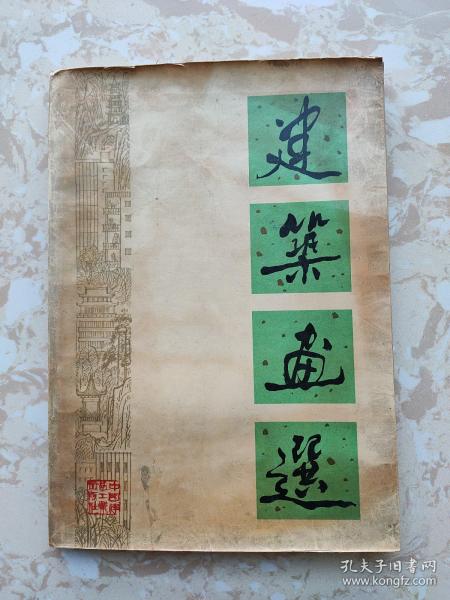 建
築
画
選
中国建
筑工业
出版社
孔夫子旧书网
www.kongfz.com